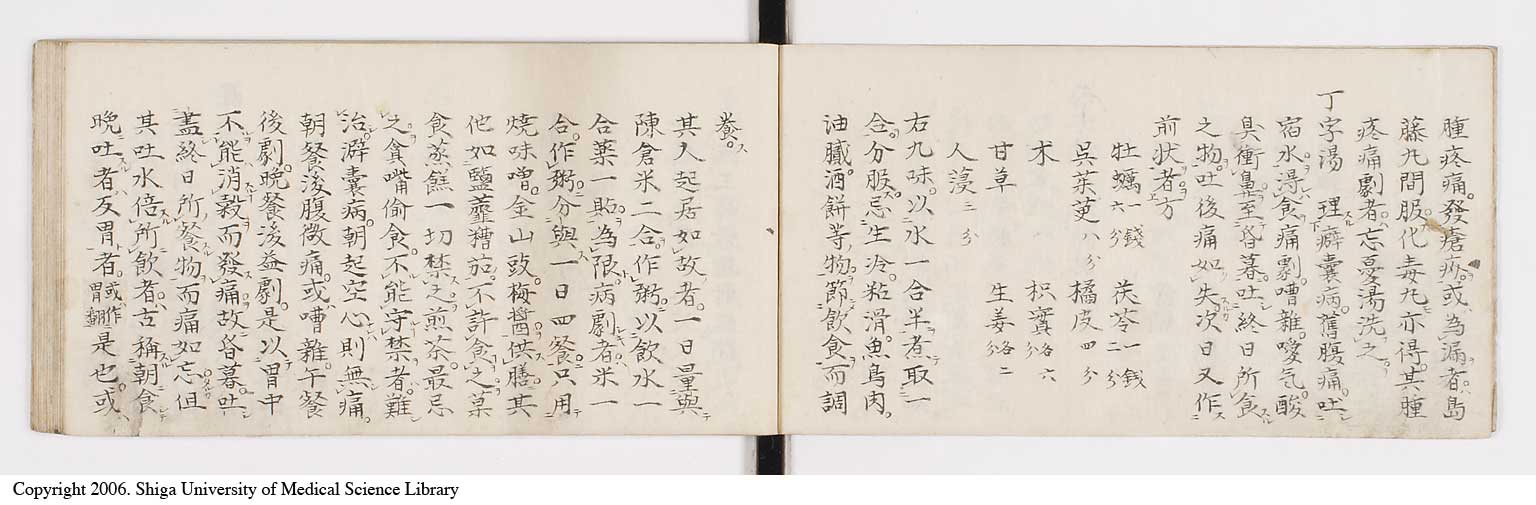 腫疼痛。發瘡疥。或為漏者。島
藤丸間服化毒丸亦得。其腫
疼痛劇者。忘憂湯洗之
丁字湯 理癖囊病。舊腹痛。吐
宿水。淂食痛劇。嘈雜。噯气。酸
臭衝鼻。至昏暮。吐終日所食
之物。吐後痛如失。次日又作
前状者方
牡蠣一錢六分 茯苓一錢二分
呉茱茰八分 橘皮四分
朮 枳實各六分
甘草 生姜各二分
人蓡三分
右九味。以水一合半。煮取一
合。分服。忌生冷。粘滑。魚鳥肉。
油膩。酒餅等物。節飲食而調
養。
其人起居如故者。一日量與
陳倉米二合。作粥。以飲水一
合藥一貼為限。病劇者。米一
合。作粥。分與一日四餐。只用
燒味噌。金山豉。梅醬。供膳。其
他如鹽虀糟茄。不許食之。菓
食蒸餻一切禁之。煎茶最忌
之。貪嘴偷食。不能守禁者。難
治。澼囊病。朝起空心則無痛。
朝餐後腹微痛。或嘈雜。午餐
後劇。晩餐後益劇。是以胃中
不能消穀而發痛。故昏暮吐
盡終日所餐物而痛如忘。但
其吐水倍所飲者。古稱朝食
晩吐者。反胃者。或作胃翻是也。或
Copyright 2006. Shiga University of Medical Science Library